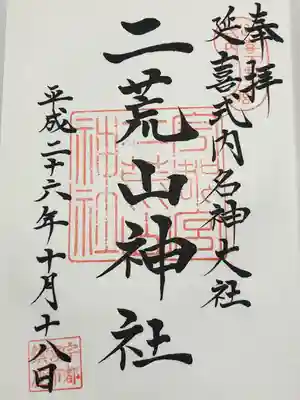 奉拝
延喜式内名神大社
二荒山神社
平成二十六年十月十八日